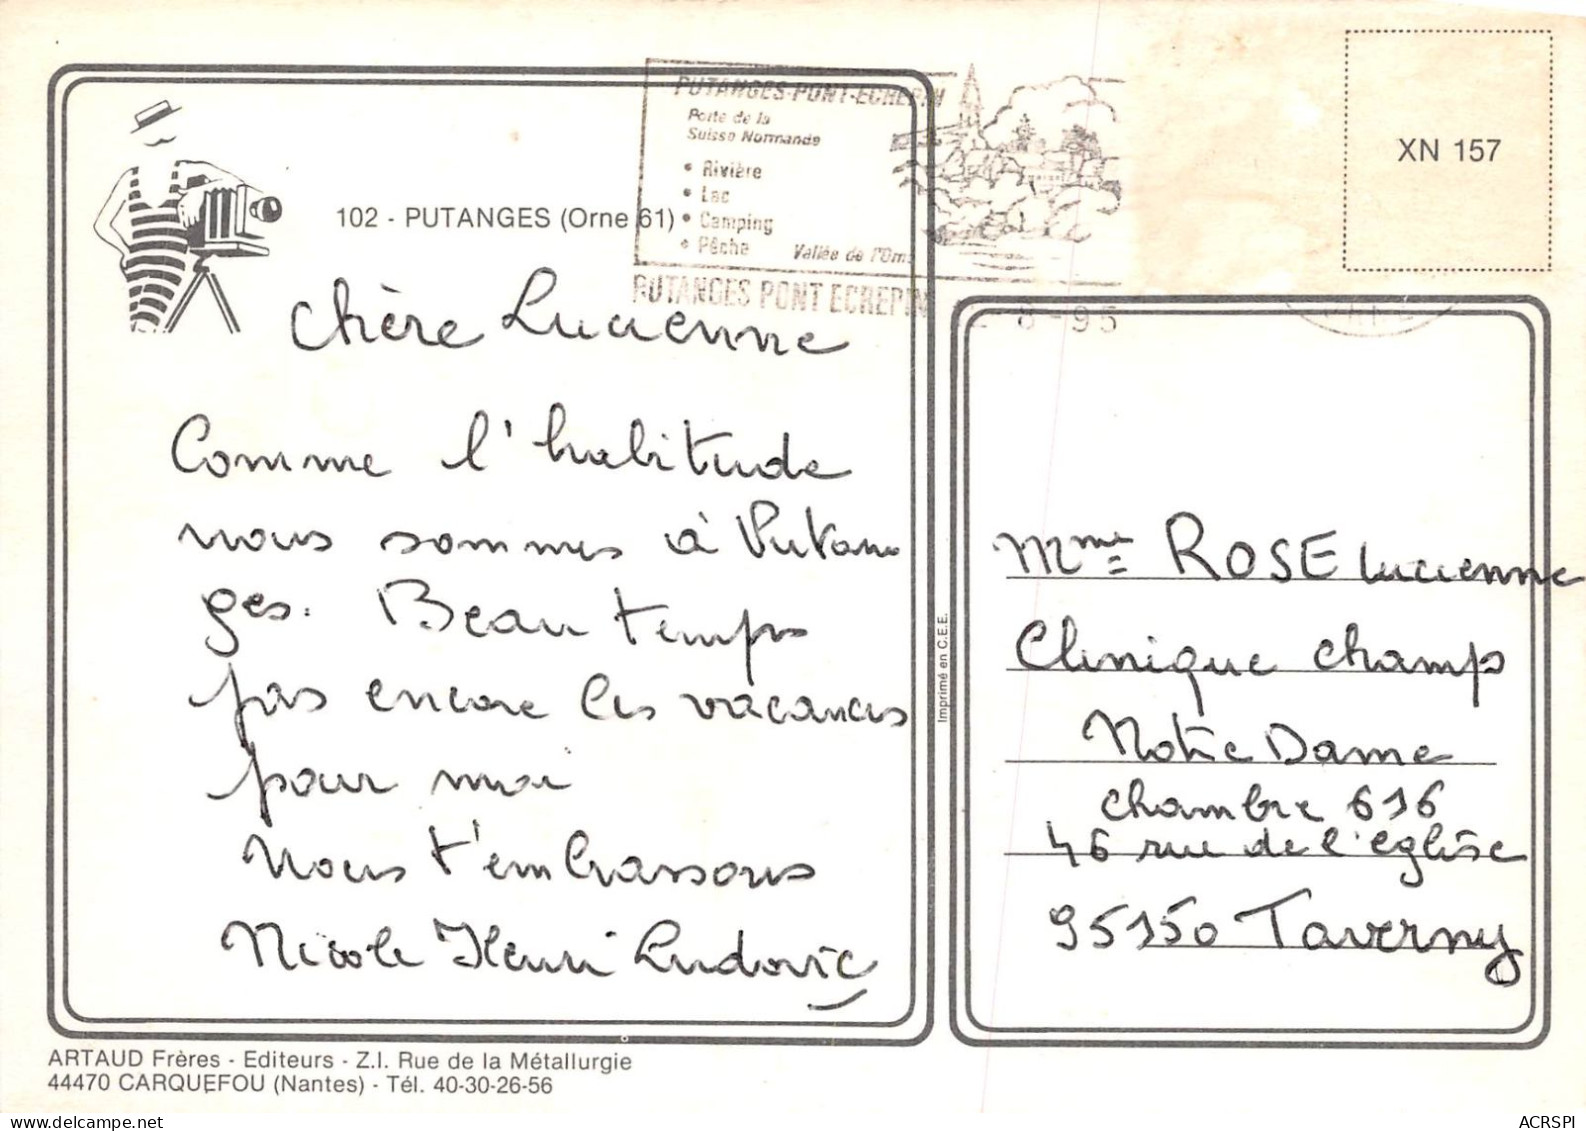 PUTANGES-PONT-ECREPIN
Porte de la
Suisse Normande
• Rivière
• Lac
• Camping
• Pêche Vallée de l'Orne
PUTANGES PONT ECREPIN
-8-95
XN 157
102 - PUTANGES (Orne 61)
Chère Lucienne
Comme l'habitude
nous sommes à Putan
ges. Beau temps
pas encore les vacances
pour moi
Nous t'embrassons
Nicole Henri Ludovic
Imprimé en C.E.E.
Mme ROSE Lucienne
Clinique champ
Notre Dame
chambre 616
46 rue de l'église
95150 Taverny
ARTAUD Frères - Editeurs - Z.I. Rue de la Métallurgie
44470 CARQUEFOU (Nantes) - Tél. 40-30-26-56
delcampe.net
ACRSPI